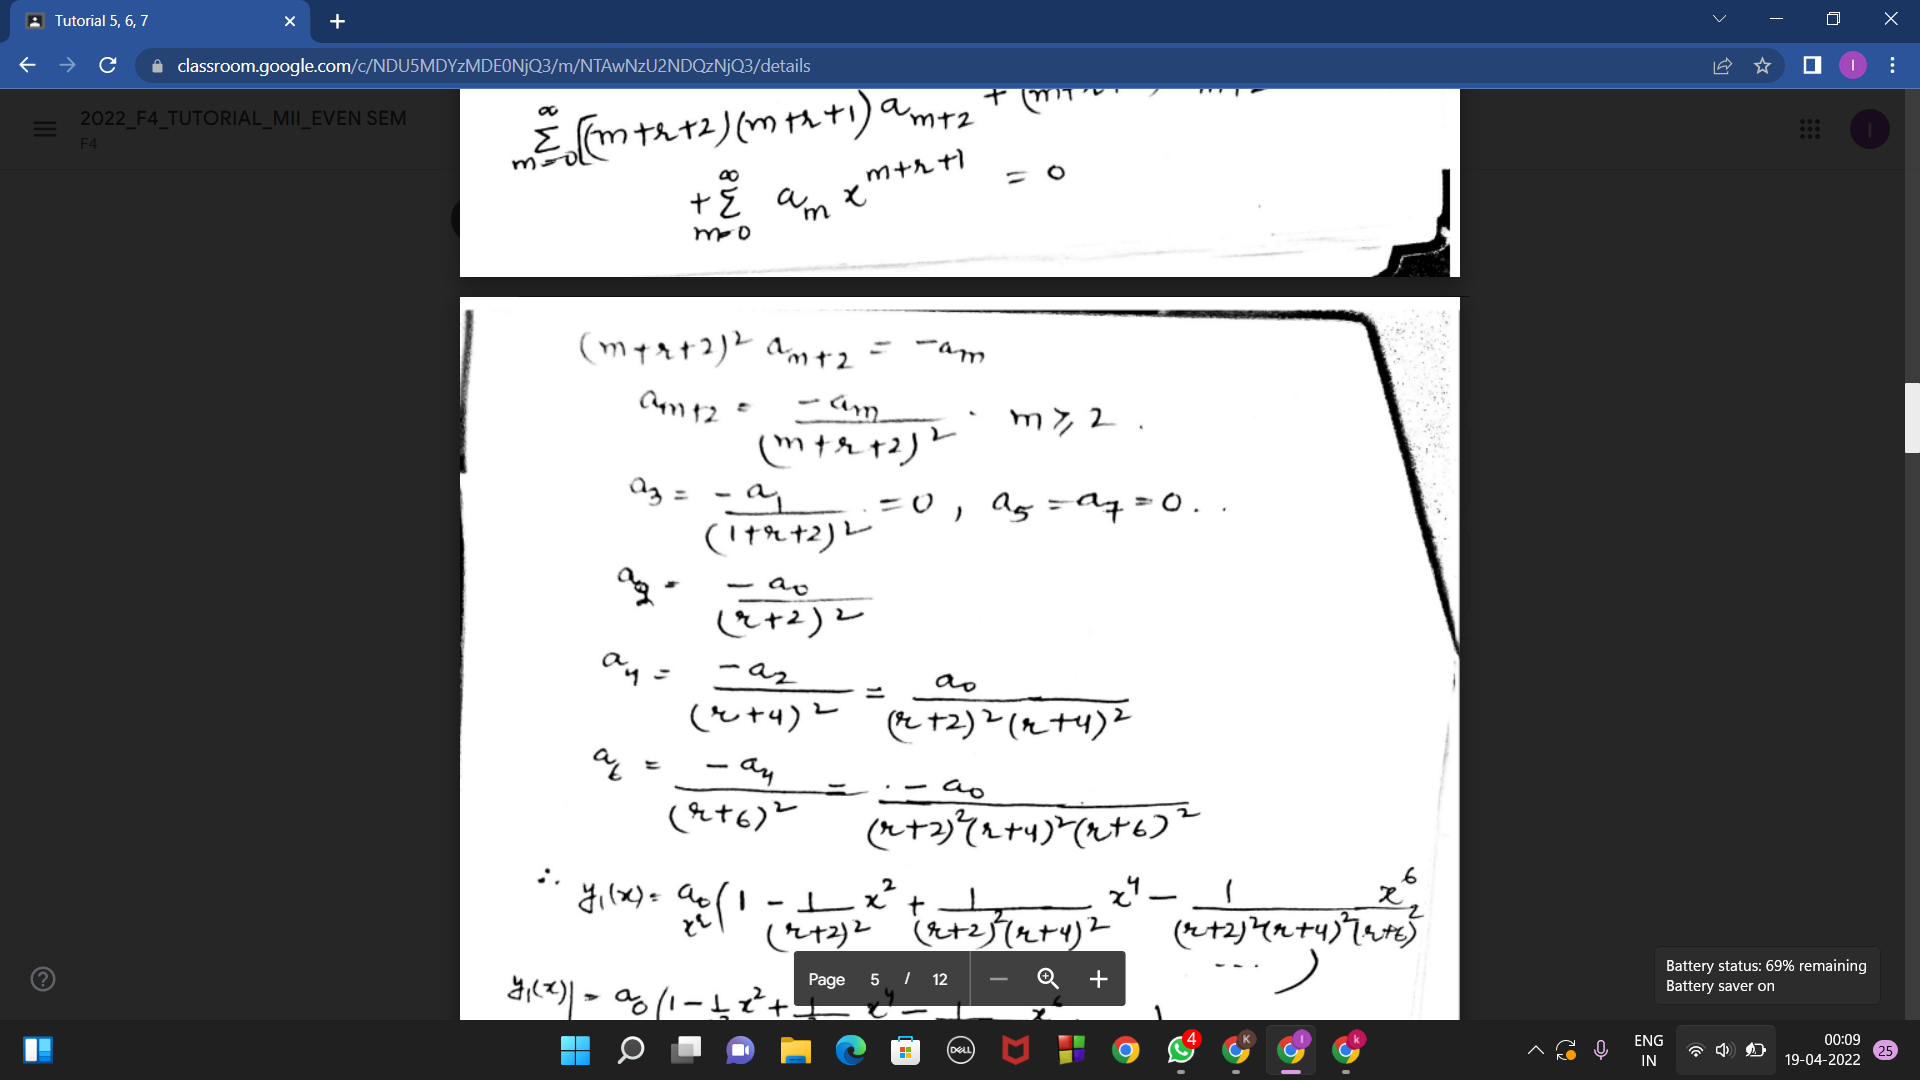 Tutorial 5, 6, 7
classroom.google.com/c/NDU5MDYzMDE0NjQ3/m/NTAwNzU2NDQzNjQ3/details
2022_F4_TUTORIAL_MII_EVEN SEM
F4
I
I
∞
Σ [(m+r+2)(m+r+1) a_{m+2} +
m=0
∞
+Σ a_m x^{m+r+1} = 0
m=0
(m+r+2)² a_{m+2} = -a_m
a_{m+2} = -a_m / (m+r+2)² . m ≥ 2 .
a_3 = -a_1 / (1+r+2)² = 0 , a_5 = a_7 = 0 . .
a_2 = -a_0 / (r+2)²
a_4 = -a_2 / (r+4)² = a_0 / (r+2)²(r+4)²
a_6 = -a_4 / (r+6)² = -a_0 / (r+2)²(r+4)²(r+6)²
∴ y_1(x) = a_0 x^r (1 - 1/(r+2)² x² + 1/(r+2)²(r+4)² x⁴ - 1/(r+2)²(r+4)²(r+6)² x⁶
---- )
y_1(x)| = a_0 (1 - 1 x² + 1 x⁴ - 1 x⁶
Page 5 / 12
Battery status: 69% remaining
Battery saver on
4
DELL
K
I
k
ENG
IN
00:09
19-04-2022
25